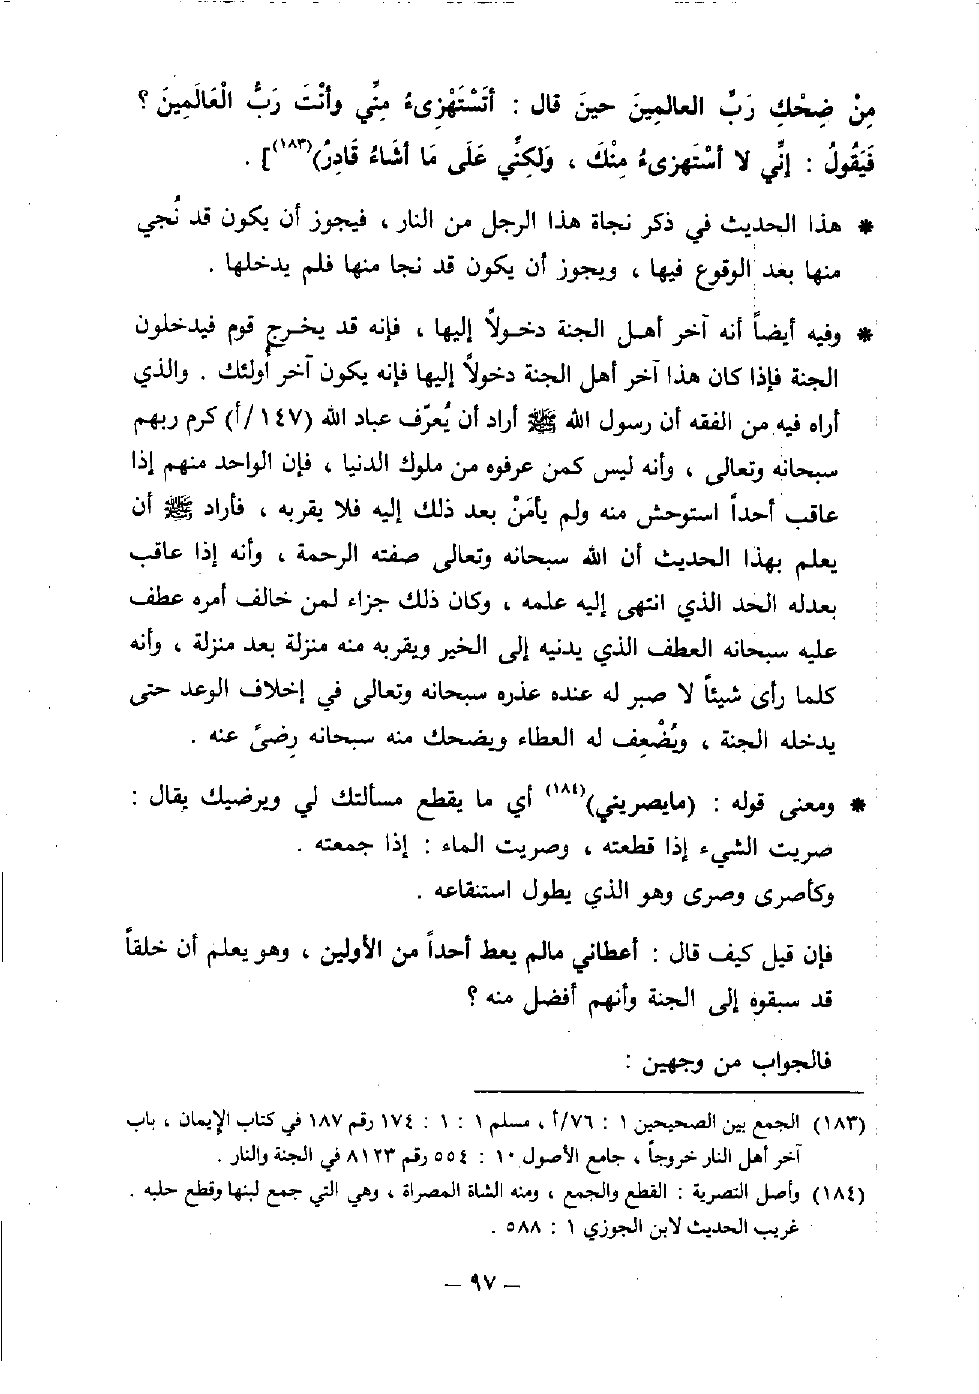 مِنْ ضِحْكِ رَبِّ العالمِينَ حينَ قال : أتَسْتَهْزِىءُ مِنِّي وأنْتَ رَبُّ الْعَالَمِينَ ؟
فَيَقُولُ : إنِّي لا أسْتَهزِىءُ مِنْكَ ، وَلكِنِّي عَلَى مَا أشَاءُ قَادِرٌ)(١٨٣)] .
* هذا الحديث في ذكر نجاة هذا الرجل من النار ، فيجوز أن يكون قد نُجي
منها بعد الوقوع فيها ، ويجوز أن يكون قد نجا منها فلم يدخلها .
* وفيه أيضاً أنه آخر أهل الجنة دخولاً إليها ، فإنه قد يخرج قوم فيدخلون
الجنة فإذا كان هذا آخر أهل الجنة دخولاً إليها فإنه يكون آخر أولئك . والذي
أراه فيه من الفقه أن رسول الله ﷺ أراد أن يُعرّف عباد الله (١٤٧/أ) كرم ربهم
سبحانه وتعالى ، وأنه ليس كمن عرفوه من ملوك الدنيا ، فإن الواحد منهم إذا
عاقب أحداً استوحش منه ولم يأمَنْ بعد ذلك إليه فلا يقربه ، فأراد ﷺ أن
يعلم بهذا الحديث أن الله سبحانه وتعالى صفته الرحمة ، وأنه إذا عاقب
بعدله الحد الذي انتهى إليه علمه ، وكان ذلك جزاء لمن خالف أمره عطف
عليه سبحانه العطف الذي يدنيه إلى الخير ويقربه منه منزلة بعد منزلة ، وأنه
كلما رأى شيئاً لا صبر له عنده عذره سبحانه وتعالى في إخلاف الوعد حتى
يدخله الجنة ، ويُضْعِف له العطاء ويضحك منه سبحانه رضىً عنه .
* ومعنى قوله : (مايصريني)(١٨٤) أي ما يقطع مسألتك لي ويرضيك يقال :
صريت الشيء إذا قطعته ، وصريت الماء : إذا جمعته .
وكأصرى وصرى وهو الذي يطول استنقاعه .
فإن قيل كيف قال : أعطاني مالم يعط أحداً من الأولين ، وهو يعلم أن خلقاً
قد سبقوه إلى الجنة وأنهم أفضل منه ؟
فالجواب من وجهين :
(١٨٣) الجمع بين الصحيحين ١ : ٧٦/أ ، مسلم ١ : ١ : ١٧٤ رقم ١٨٧ في كتاب الإيمان ، باب
آخر أهل النار خروجاً ، جامع الأصول ١٠ : ٥٥٤ رقم ٨١٢٣ في الجنة والنار .
(١٨٤) وأصل التصرية : القطع والجمع ، ومنه الشاة المصراة ، وهي التي جمع لبنها وقطع حلبه .
غريب الحديث لابن الجوزي ١ : ٥٨٨ .
– ٩٧ –